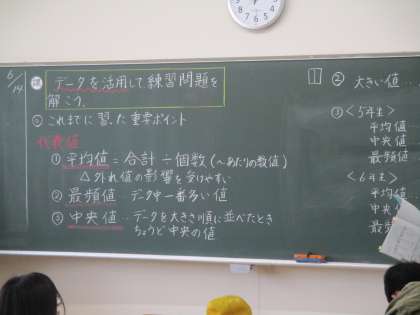 6/14
課 データを活用して練習問題を
解こう。
◎これまでに習った重要ポイント
代表値
① 平均値=合計÷個数(~あたりの数値)
△外れ値の影響を受けやすい
② 最頻値‥データ中一番多い値
③ 中央値‥データを大きさ順に並べたとき
ちょうど中央の値
1 ② 大きい値‥
③<5年生>
平均値
中央値
最頻値
<6年生>
平均値
中央
最頻